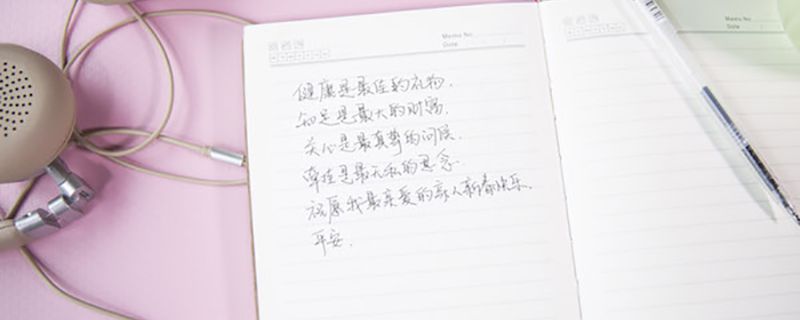 Memo No.
Date
健康是最佳的礼物,
知足是最大的财富,
关心是最真挚的问候,
牵挂是最无私的思念.
祝愿我最亲爱的亲人新春快乐,
平安.
Memo No.
Date